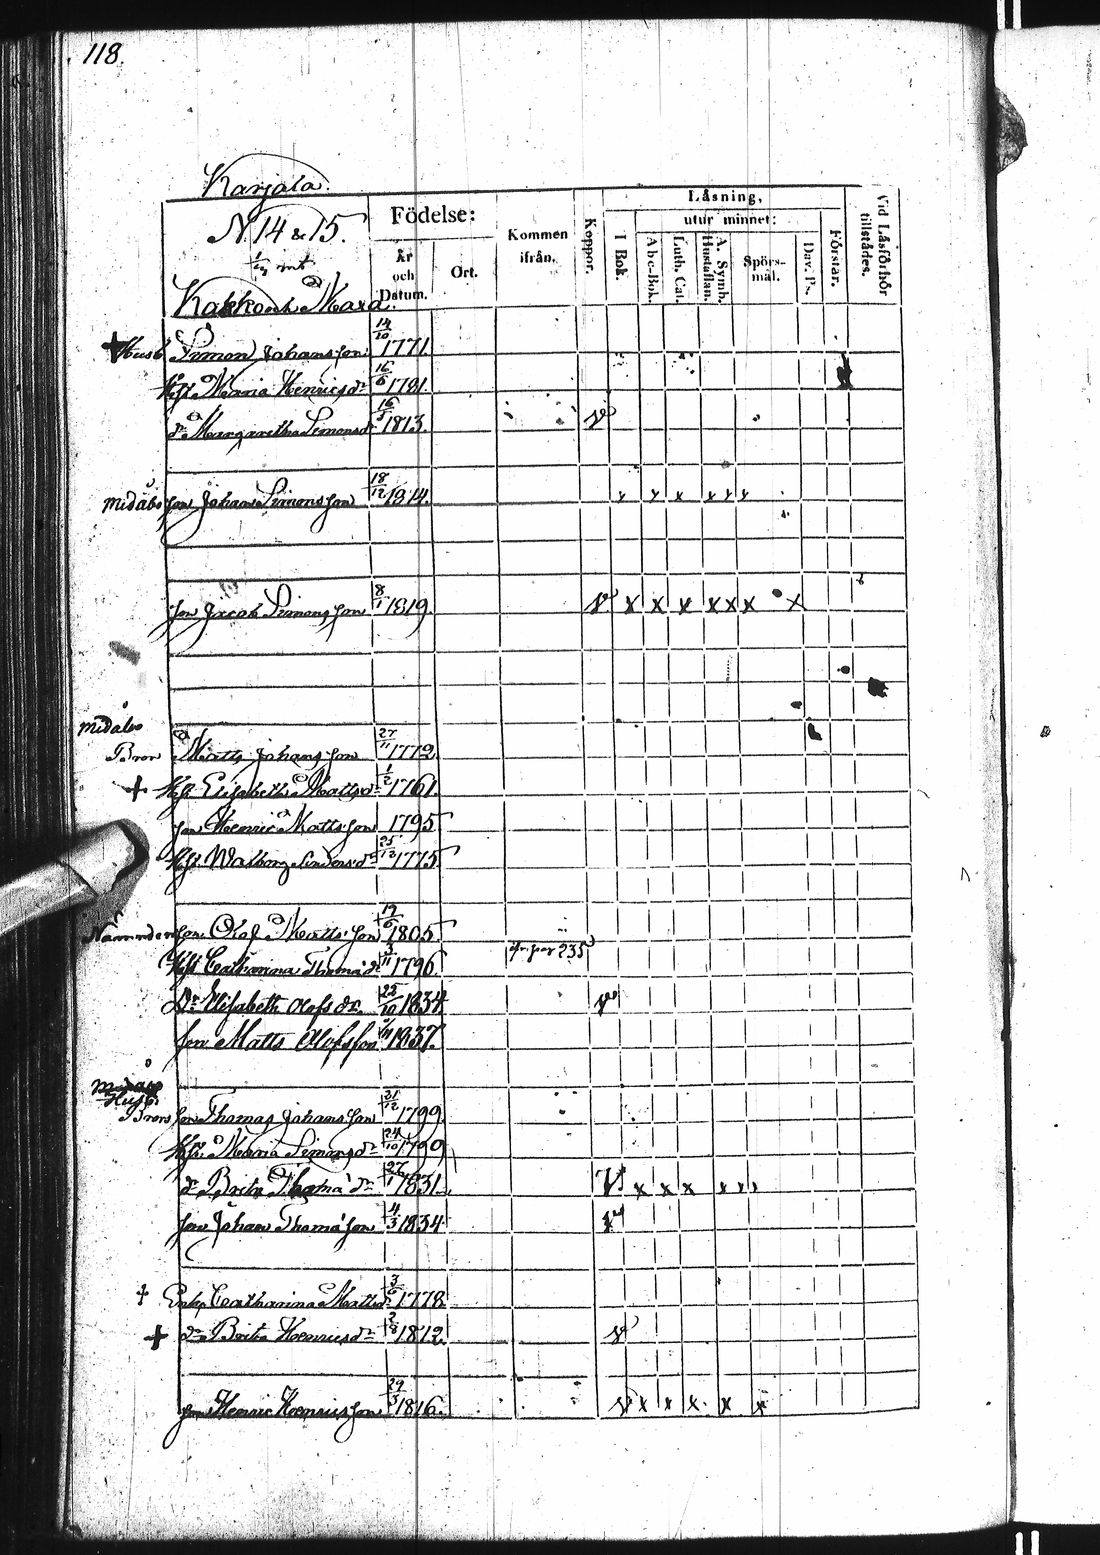 118.
Karjala.
N. 14 & 15.
Kakko och Mara.
Födelse:
År och Datum.
Ort.
Kommen ifrån.
Koppor.
Läsning,
utur minnet:
I Bok.
Abc-Bok.
Luth. Cat.
A. Symb. Hustaflan.
Spörs-mål.
Dav. Ps.
Förstår.
Vid Läsförhör tillstädes.
+ Husb Simon Johansson 14/10 1771.
Hst. Maria Henricsdr 16/6 1781.
dr Margaretha Simonsdr 1813. v
midåbo son Johan Simonsson 18/12 1814. x x x x x x
son Jacob Simonsson 8/1 1819. v x x x x x x x
midåbo
Bror Matts Johansson 27/11 1772.
+ Hst. Elisabeth Mattsdr 1/2 1761.
son Henric Mattsson 1795
Hst. Walborg Simonsdr 25/12 1775
son Olof Mattsson 1805.
Hst Catharina Thomædr 3/11 1796. fr. pag 235
Dr Elisabeth Olofsdr. 25/10 1834 v
son Matts Olofsson 1837.
Husb.
Brors son Thomas Johansson 21/12 1799.
Hst. Maria Simonsdr 24/10 1790
dr Brita Thomædr 27/1 1831. v x x x x x x
son Johan Thomæson 4/3 1834 v
+ Enka Catharina Mattsdr 3/6 1778
+ dr Brita Henricsdr 2/8 1812. v
son Henric Henricsson 29/3 1816. v x x x x x